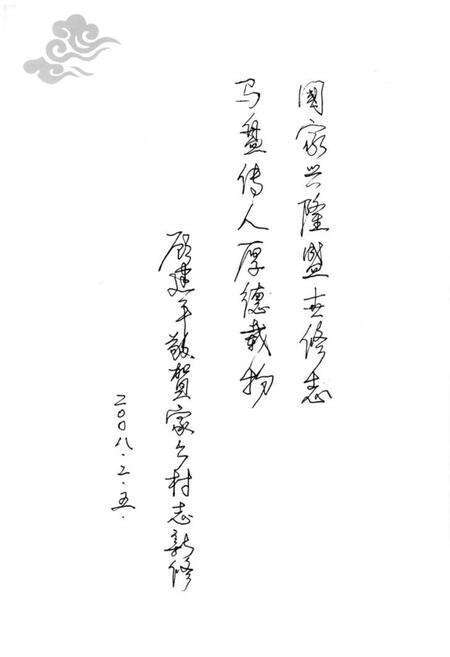 國家兴隆盛世修志
马盘传人厚德载物
顾建平敬贺家乡村志新修
二00八.二.五.